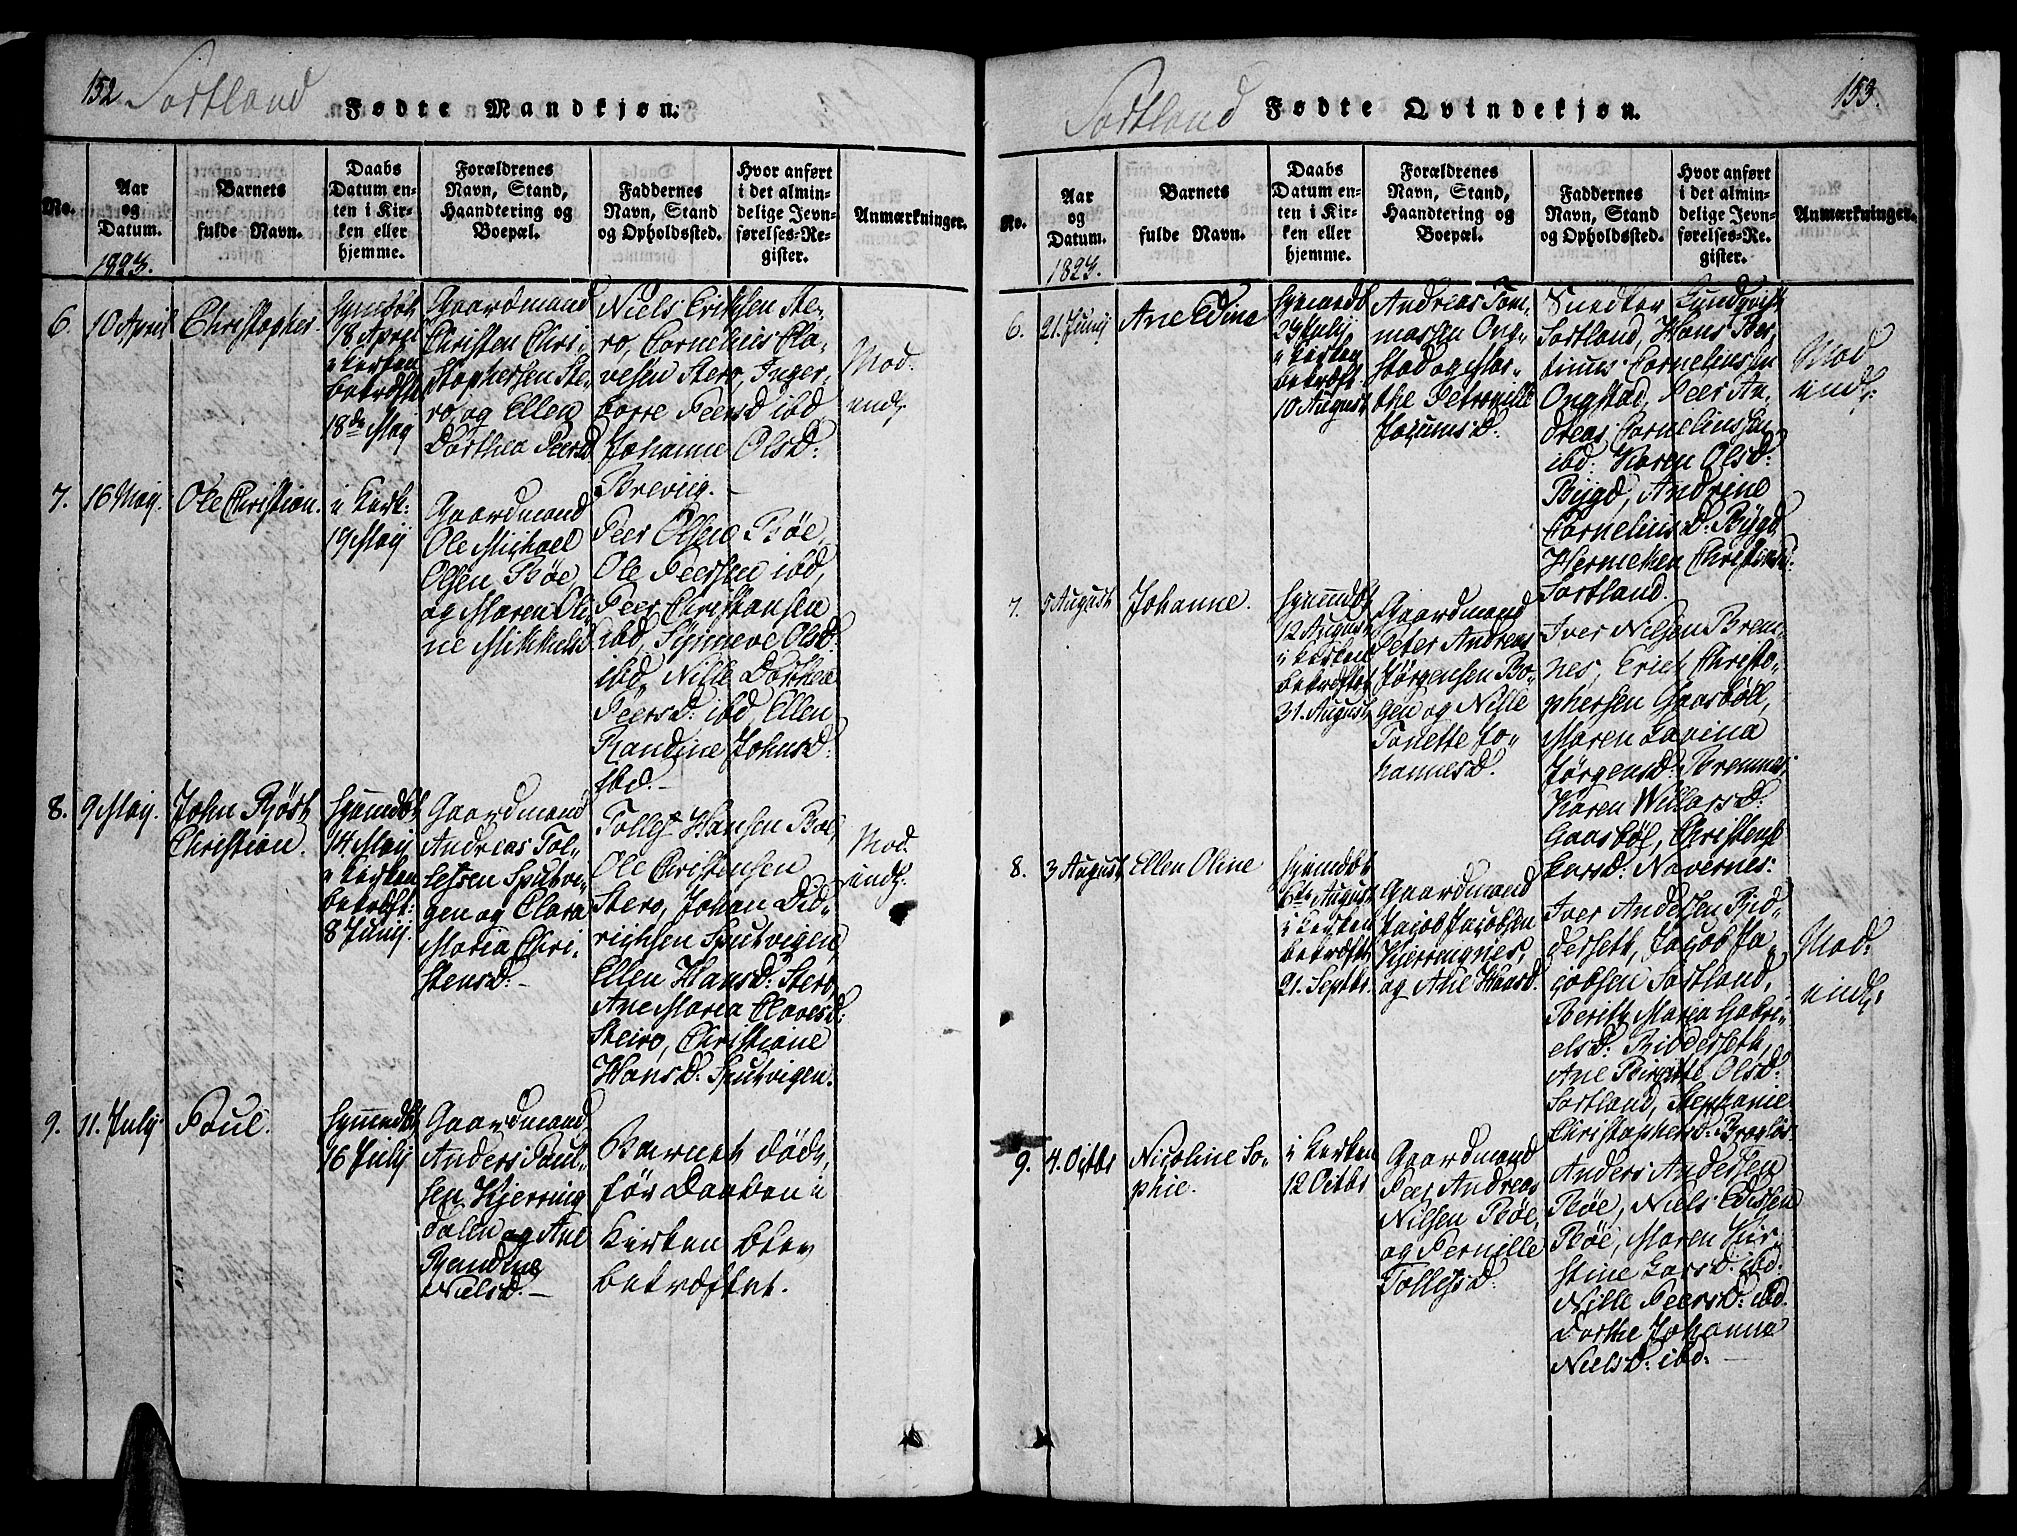 152 Sortland
Fødte Mandkjøn.
No.
Aar
og
Datum.
1823.
Barnets
fulde Navn.
Daabs
Datum en-
ten i Kir-
ken eller
hjemme.
Forældrenes
Navn, Stand,
Haandtering og
Boepæl.
Faddernes
Navn, Stand
og Opholdssted.
Hvor anført
i det almin-
delige Jevn-
førelses-Re-
gister.
Anmærkninger.
6.
10 April
Christopher.
Hjemdøbt
18 April
i Kirken
bekræftet
18de May
Gaardmand
Christen Chri-
stophersen Ste-
ro, og Ellen
Dorthea Peersd
Niels Eriksen Ste-
ro, Cornelius Cla-
vesen Stero, Inger-
borre Peersd ibd,
Johanne Olsd:
Breviig.
Mod.
indp.
7.
16 May.
Ole Christian.
i Kirk:
19 Maij
Gaardmand
Ole Michael
Olsen Bøe,
og Maren Oli-
ne Mikkelsd
Peer Olsen Bøe,
Ole Peersen ibd,
Peer Christiansen
ibd, Synneve Olsd:
ibd, Nille Dorthea
Peersd: ibd, Ellen
Randine Johnsd:
ibd.
8.
9 Maij.
John Røst
Christian.
Hjemdøbt
14 Maij
i Kirken
bekræft:
8 Junij.
Gaardmand
Andreas Tol-
lefsen Sputvi-
gen og Clara
Maria Chri-
stensd:
Tollef Hansen Bøe,
Ole Christensen
Stero, Johan Did-
richsen Sputvigen,
Ellen Hansd: Stero,
Ane Maria Clavesd:
Steiro, Christiane
Hansd: Sputvigen.
Mod.
indp:
9.
11. July
Poul.
Hjemdøbt
16 Julij
Gaardmand
Anders Paul-
sen Kjerring
dalen og Ane
Randine
Nielsd.
Barnet døde,
før Daaben i
Kirken blev
bekræftet.
Sortland
Fødte Qvindekjøn.
153.
No.
Aar
og
Datum.
1823.
Barnets
fulde Navn.
Daabs
Datum en-
ten i Kir-
ken eller
hjemme.
Forældrenes
Navn, Stand,
Haandtering og
Boepæl.
Faddernes
Navn, Stand
og Opholdssted.
Hvor anført
i det almin-
delige Jevn-
førelses-Re-
gister.
Anmærkninger.
6.
21. Junij
Ane Edine
Hjemdøbt
29 Julij
i Kirken
bekræft
10 August
Andreas Tom-
massen Ong-
stad og Mar-
the Petronille
Jocumsd.
Snedker Lundqvist
Sortland, Hans Ber-
tinus Corneliussen
Ongstad, Peer An-
dreas Corneliussen
ibd: Karen Olsd:
Bygd, Andrine
Corneliusd: Bygd,
Herneken Christiansd:
Sortland.
Mod
indp:
7.
5 August
Johanne.
Hjemdøbt
12 August
i Kirken
bekræftet
31. August
Gaardmand
Peter Andreas
Jørgensen Bo-
gen og Nille
Tonette Jo-
hannesd.
Iver Nielsen Brem-
nes, Erich Christo-
phersen Gaasbøll,
Maren Lovina
Jørgensd: Bremnes,
Karen Willarsd:
Gaasbøl, Christense
Larsd: Navernes:
8.
3 August
Ellen Oline
Hjemdøbt
6te August
i Kirken
bekræftet
21. Septbr.
Gaardmand
Jacob Jacobsen
Kjerringnes,
og Ane Hansd.
Iver Andersen Rid-
derseth, Jacob Ja-
cobsen Sortland,
Berith Maria Gabri-
elsd: Ridderseth,
Ane Birgitte Olsd:
Sortland, Stephanie
Christophersd:
Mod:
indp:
9.
4. Octbr
Nicoline So-
phie.
i Kirken
12 Octbr
Gaardmand
Peer Andreas
Nilsen Bøe,
og Pernille
Tollefsd:
Anders Andersen
Bøe, Niels Edissen
Bøe, Maren Kir-
stine Larsd: ibd:
Nille Peersd: ibd.
Dorthe Johanna
Nielsd: ibd: